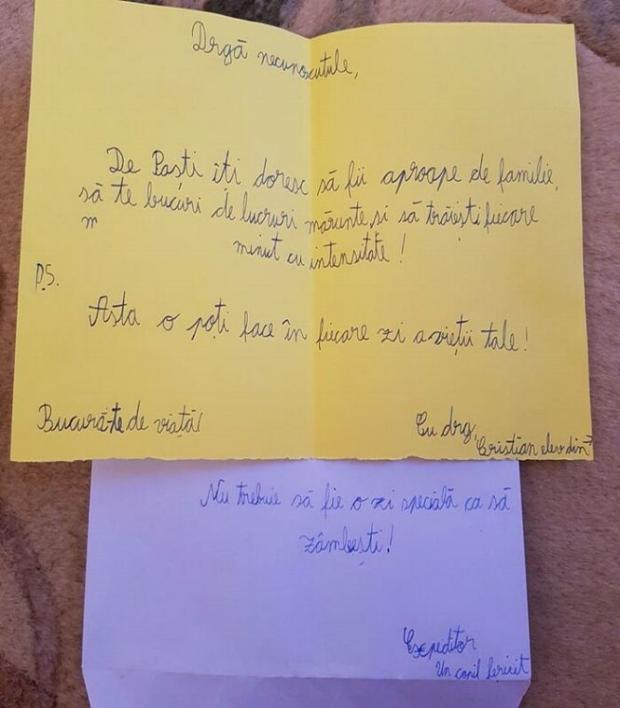 Drgă necunoscutule,
De Paști îți doresc să fii aproape de familie,
să te bucuri de lucruri mărunte, și să trăiești fiecare
m
minut cu intensitate!
P.S.
Asta o poți face în fiecare zi a vieții tale!
Bucură-te de viață!
Cu drg,
Cristian elev din
Nu trebuie să fie o zi specială ca să
zâmbești!
Expeditor
Un copil fericit